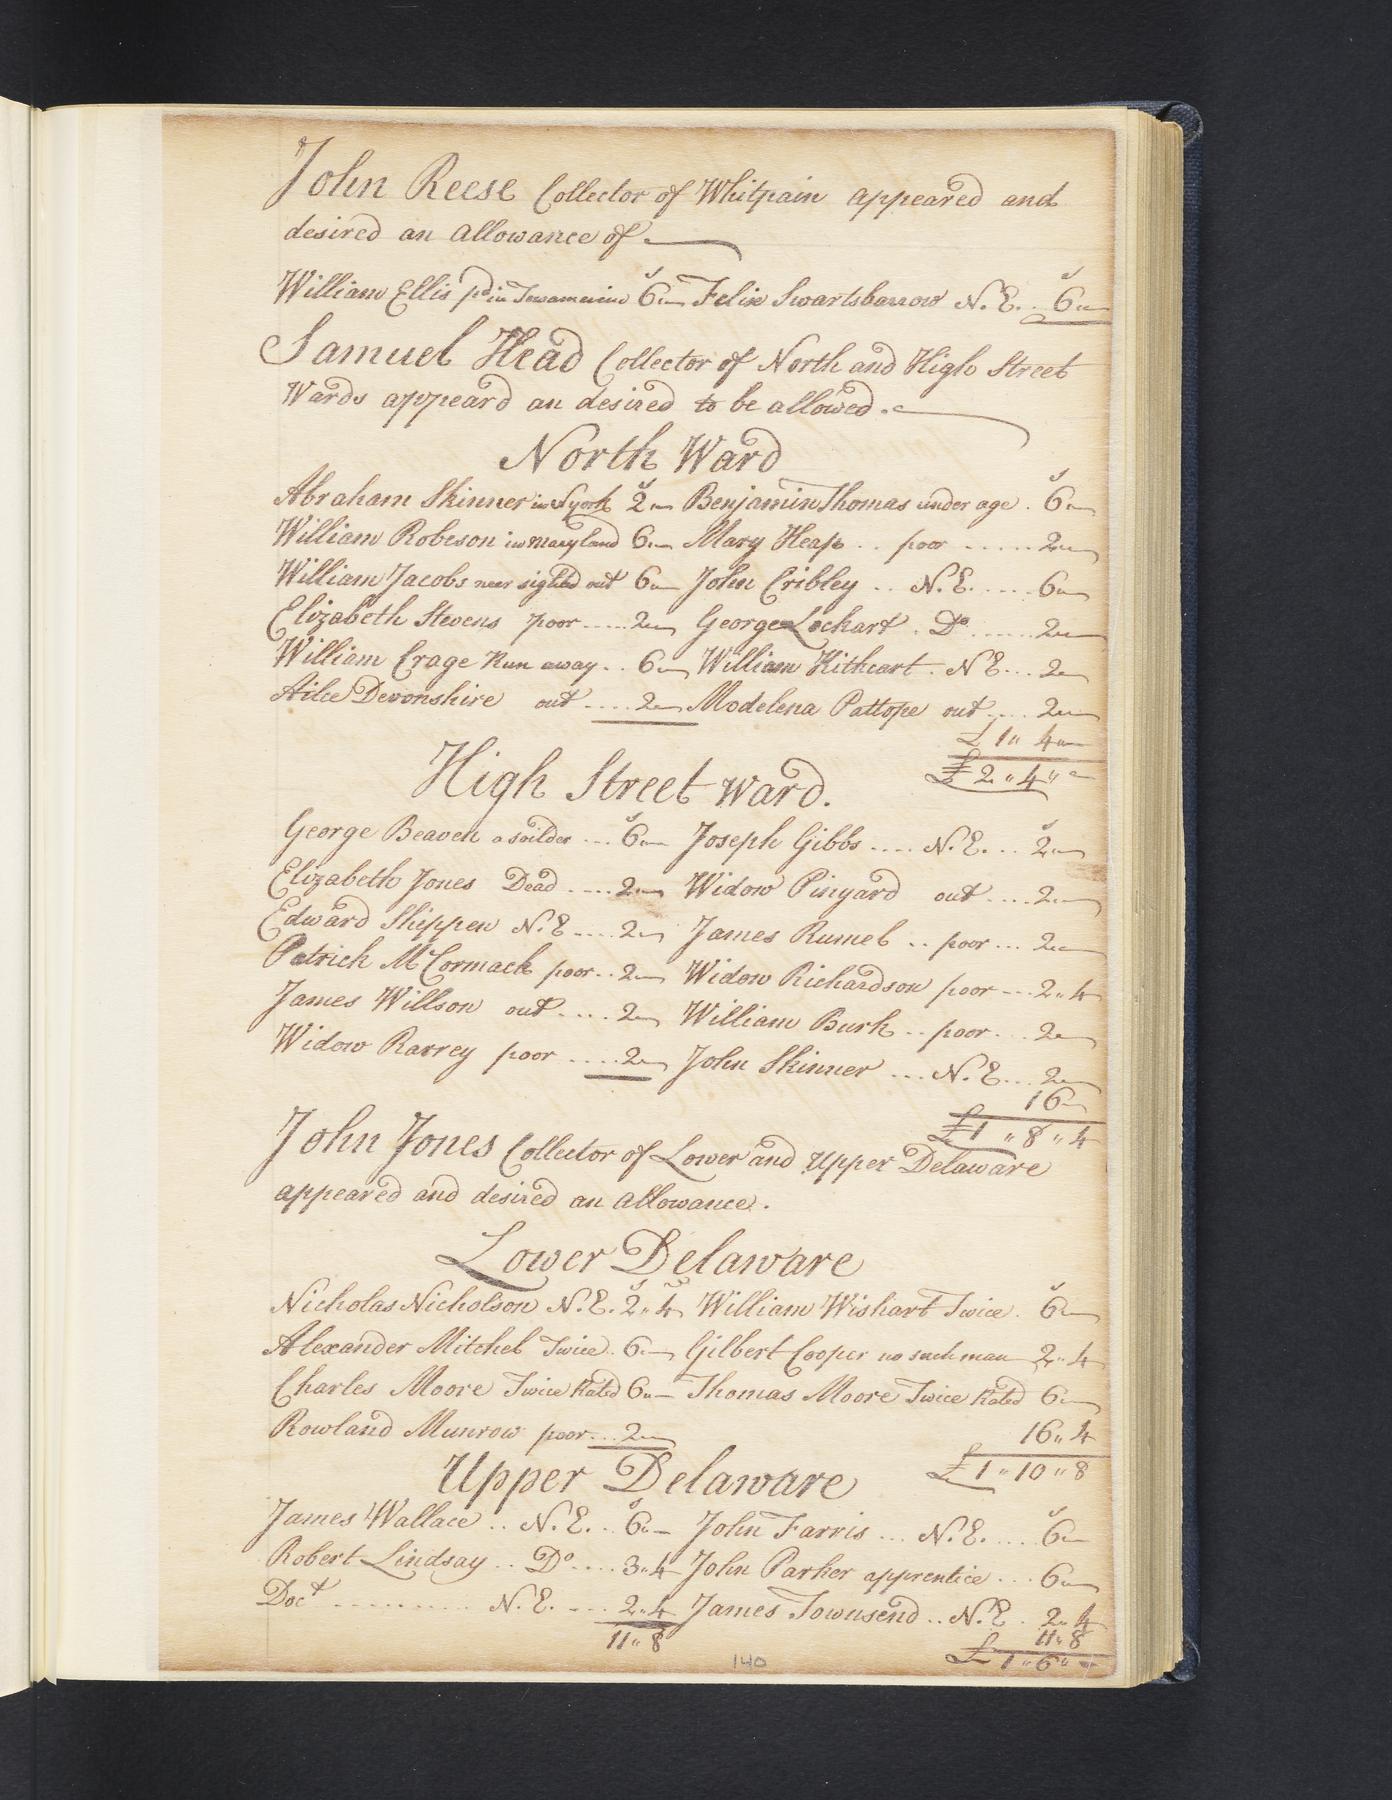 John Reese Collector of Whitpain appeared and
desired an allowance of
William Ellis pd in Towamencin 6 s Felix Swartsbarrow N. E. 6 s
Samuel Head Collector of North and High Street
Wards appeard an desired to be allowed.
North Ward
Abraham Skinner in N york 2 s Benjamin Thomas under age . 6 s
William Robeson in maryland 6 Mary Heap .. poor ..... 2
William Jacobs near sighted out 6 John Cribley .. N. E. .... 6
Elizabeth Stevens poor ..... 2 George Lockart . Do ...... 2
William Crage Run away .. 6 William Kithcart . N E ... 2
Ailce Devonshire out .... 2 Modelena Pattope out .... 2
£ 1 " 4
£ 2 " 4 "
High Street Ward.
George Beaven a soilder ... 6 s Joseph Gibbs .... N. E. .. 2 s
Elizabeth Jones Dead .... 2 Widow Pinyard out .... 2
Edward Shippen N. E .... 2 James Rumel .. poor ... 2
Patrick McCormack poor .. 2 Widow Richardson poor ... 2 " 4
James Willson out .... 2 William Burk .. poor ... 2
Widow Rarrey poor .... 2 John Skinner ... N. E ... 2
16
£ 1 " 8 " 4
John Jones Collector of Lower and Upper Delaware
appeared and desired an allowance.
Lower Delaware
Nicholas Nicholson N. E. 2 " 4 William Wishart Twice . 6 s
Alexander Mitchel Twice . 6 Gilbert Cooper no such man 2 " 4
Charles Moore Twice Rated 6 Thomas Moore Twice Rated 6
Rowland Munrow poor ... 2
16 " 4
£ 1 " 10 " 8
Upper Delaware
James Wallace .. N. E. .. 6 s John Farris ... N. E. .... 6 s
Robert Lindsay .. Do .... 3 " 4 John Parker apprentice ... 6
Doct .......... N. E. ... 2 " 4 James Townsend .. N. E . 2 " 4
11 " 8 11 " 8
£ 1 " 6 "
140